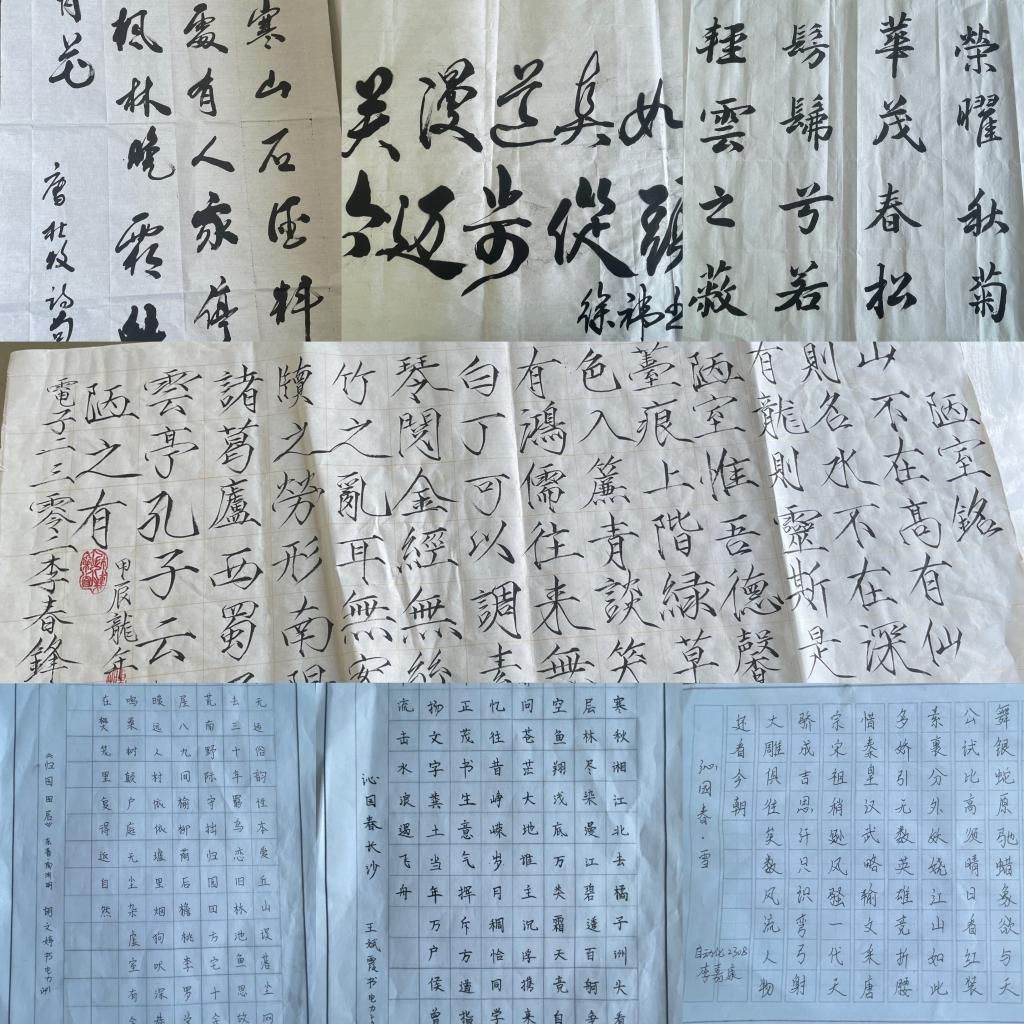 寒山石径斜
處有人家停
枫林晚霜
月花
唐杜牧詩句
关漫道真如
迈步從頭
徐祎
榮曜秋菊
華茂春松
髣髴兮若
輕雲之蔽
陋室銘
山不在髙有仙
則名水不在深
有龍則靈斯是
陋室惟吾德馨
薹痕上階緑草
色入簾青談笑
有鴻儒往来無
白丁可以調素
琴閱金經無絲
竹之亂耳無案
牘之勞形南陽
諸葛廬西蜀子
雲亭孔子云
陋之有
甲辰龍年
電子二三零二李春鋒
无适俗韵性本爱丘山误落尘网
去三十年羁鸟恋旧林池鱼思故
荒南野际守拙归园田方宅十
屋八九间榆柳荫后檐桃李罗堂
暧远人村依依墟里烟狗吠深巷
鸣桑树颠户庭无尘杂虚室有余
在樊笼里复得返自然
《归园田居》东晋陶渊明 胡文婷书电力
寒秋湘江北去橘子洲头看
层林尽染漫江碧透百舸争
空鱼翔浅底万类霜天竞自
问苍茫大地谁主沉浮携来
忆往昔峥嵘岁月稠恰同学
正茂书生意气挥斥方遒指
扬文字粪土当年万户侯曾
流击水浪遏飞舟
沁园春长沙 王斌霞书电力
舞银蛇原驰蜡象欲与天
公试比高须晴日看红装
素裹分外妖娆江山如此
多娇引无数英雄竞折腰
惜秦皇汉武略输文采唐
宗宋祖稍逊风骚一代天
骄成吉思汗只识弯弓射
大雕俱往矣数风流人物
还看今朝
沁园春·雪
自动化2308
李嘉康